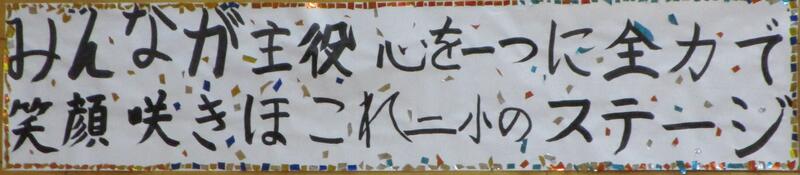 みんなが主役 心を一つに全力で
笑顔咲きほこれ二小のステージ